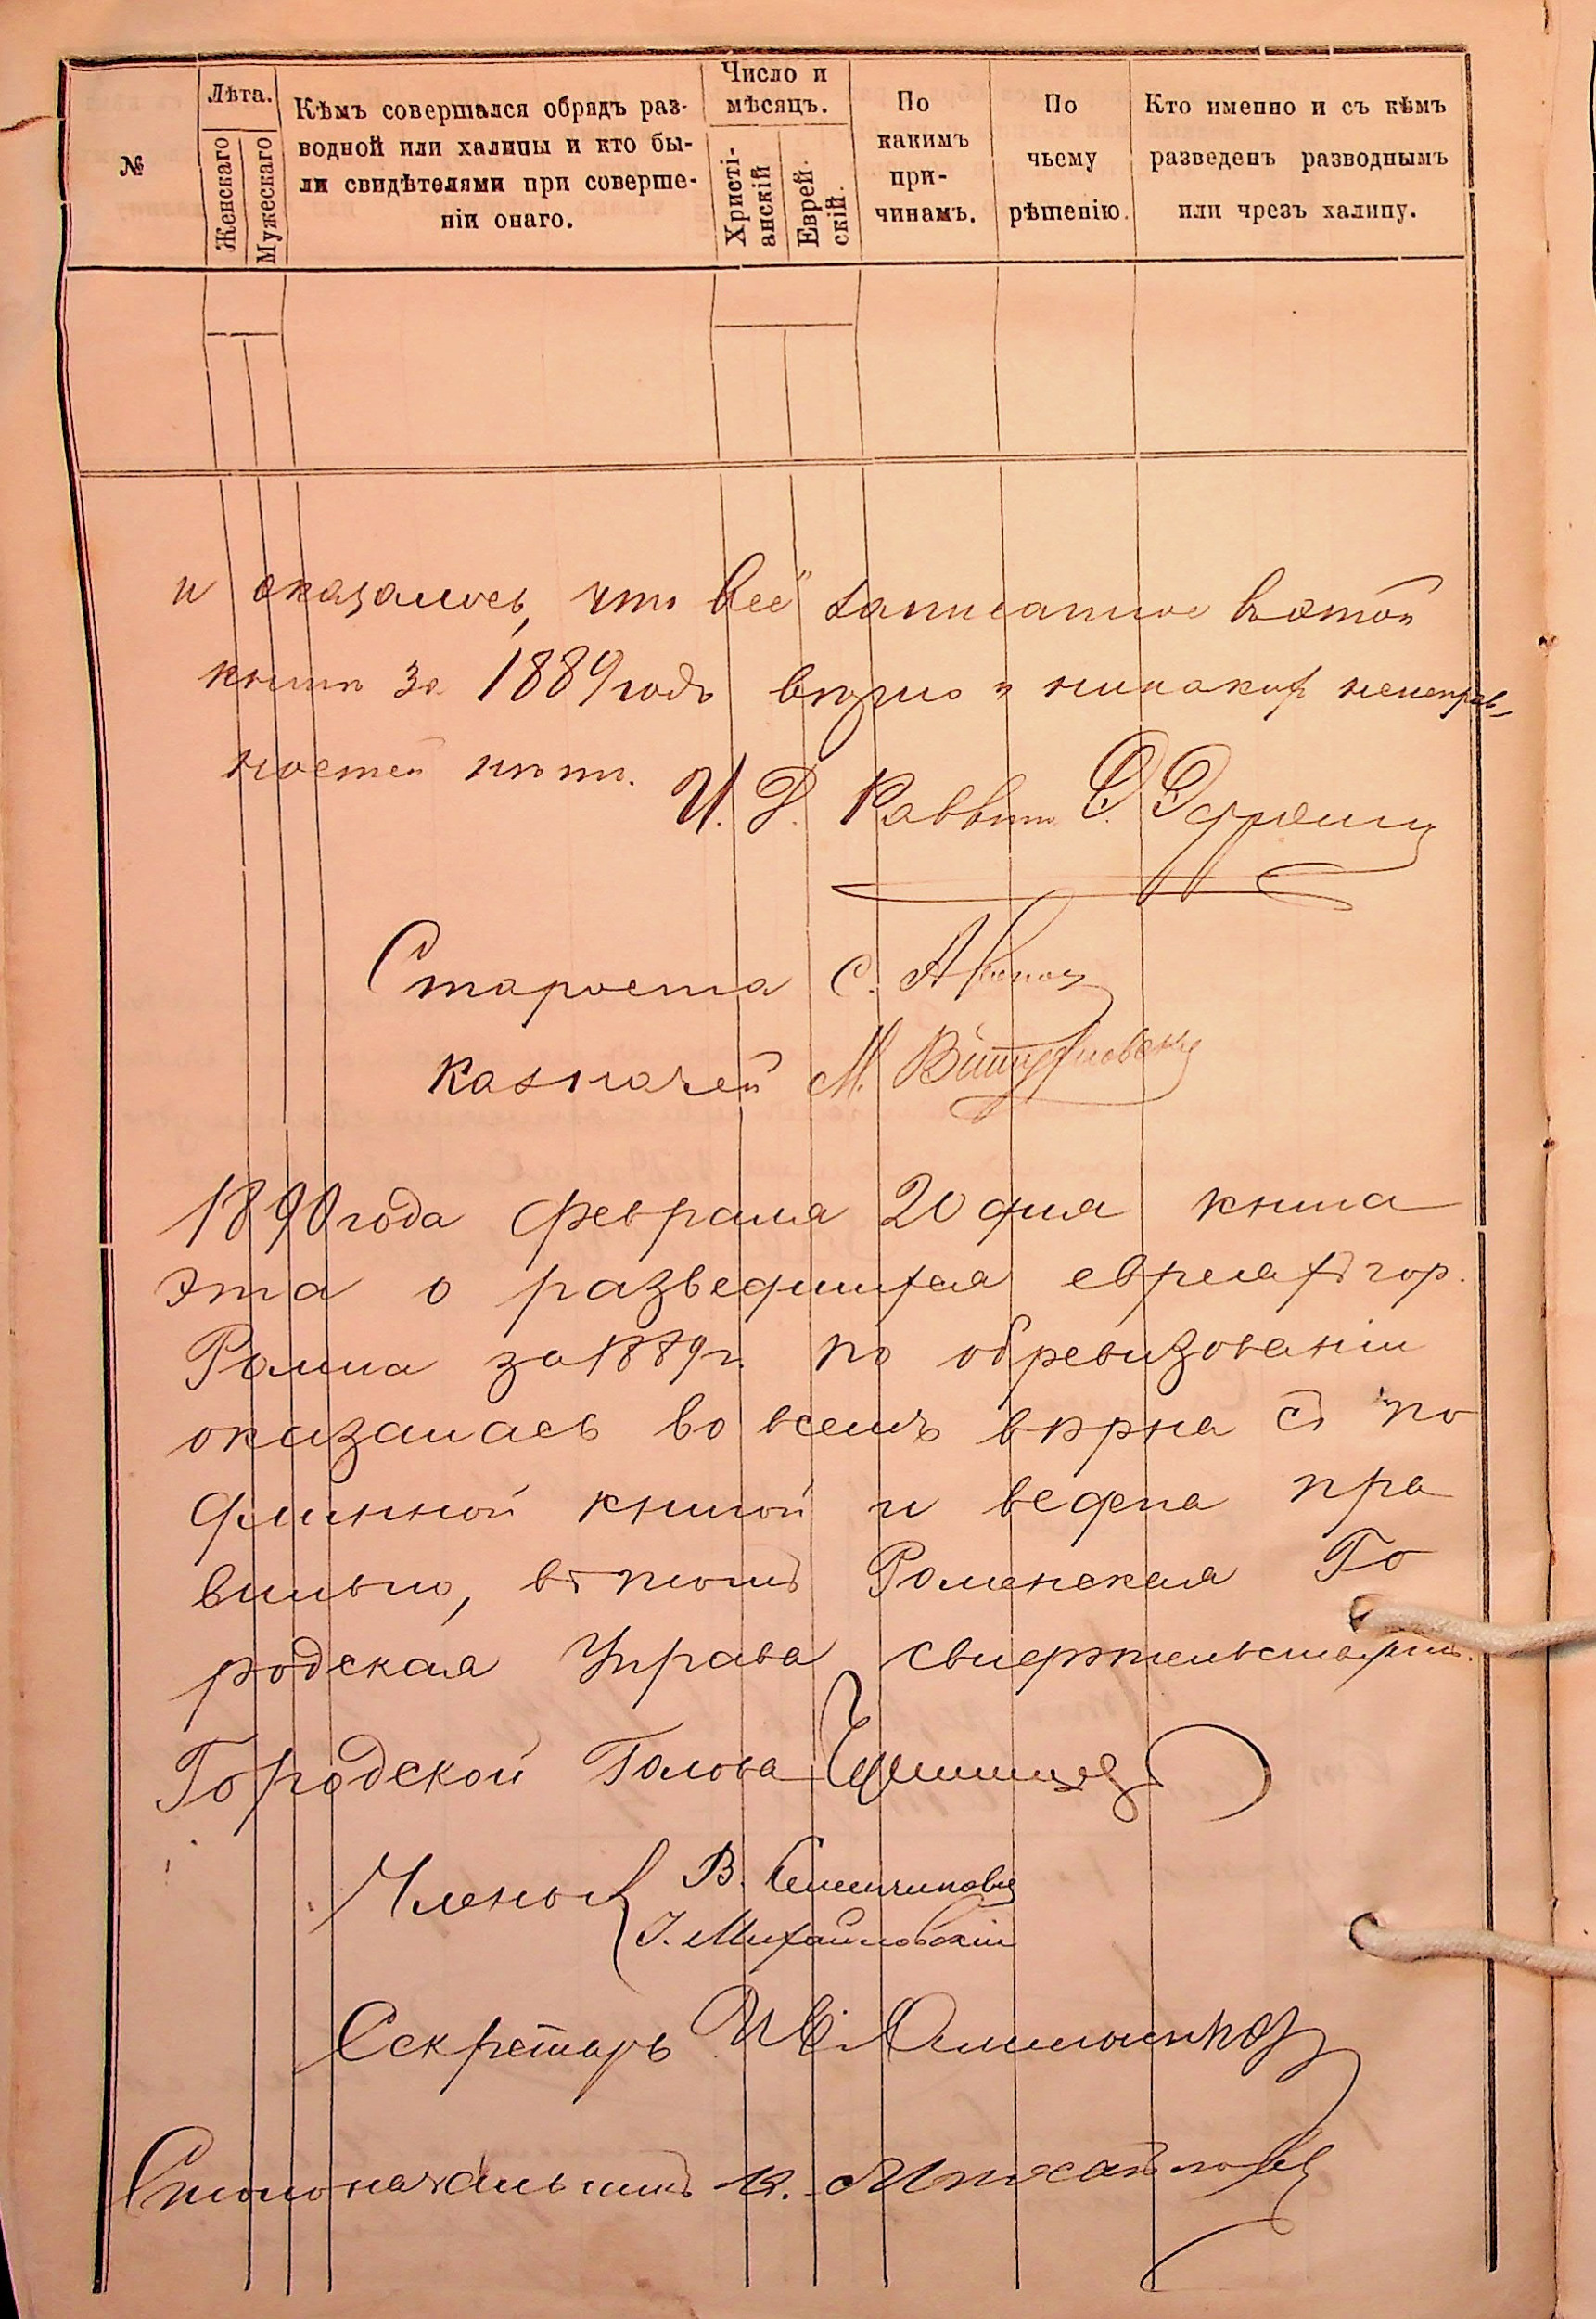 №
Лѣта.
Женскаго
Мужескаго
Кѣмъ совершался обрядъ раз-
водной или халицы и кто бы-
ли свидѣтелями при соверше-
ніи онаго.
Число и
мѣсяцъ.
Христі-
анскій
Еврей-
скій.
По
какимъ
при-
чинамъ.
По
чьему
рѣшенію.
Кто именно и съ кѣмъ
разведенъ разводнымъ
или чрезъ халицу.
и оказалось, что всё записанное въ этой
книгѣ за 1889 годъ вѣрно и никакихъ неисправ-
ностей нѣтъ. И. Д. Раввина
Староста С.
Казначей М.
1890 года февраля 20 дня книга
эта о разведшихся евреяхъ гор.
Ромна за 1889 г. по обревизованіи
оказалась во всемъ вѣрна съ по
длинной книгой и ведена пра
вильно, въ томъ Роменская Го
родская Управа свидѣтельствуетъ.
Городской Голова
Члены В.
І. Михайловскій
Секретарь
Столоначальникъ